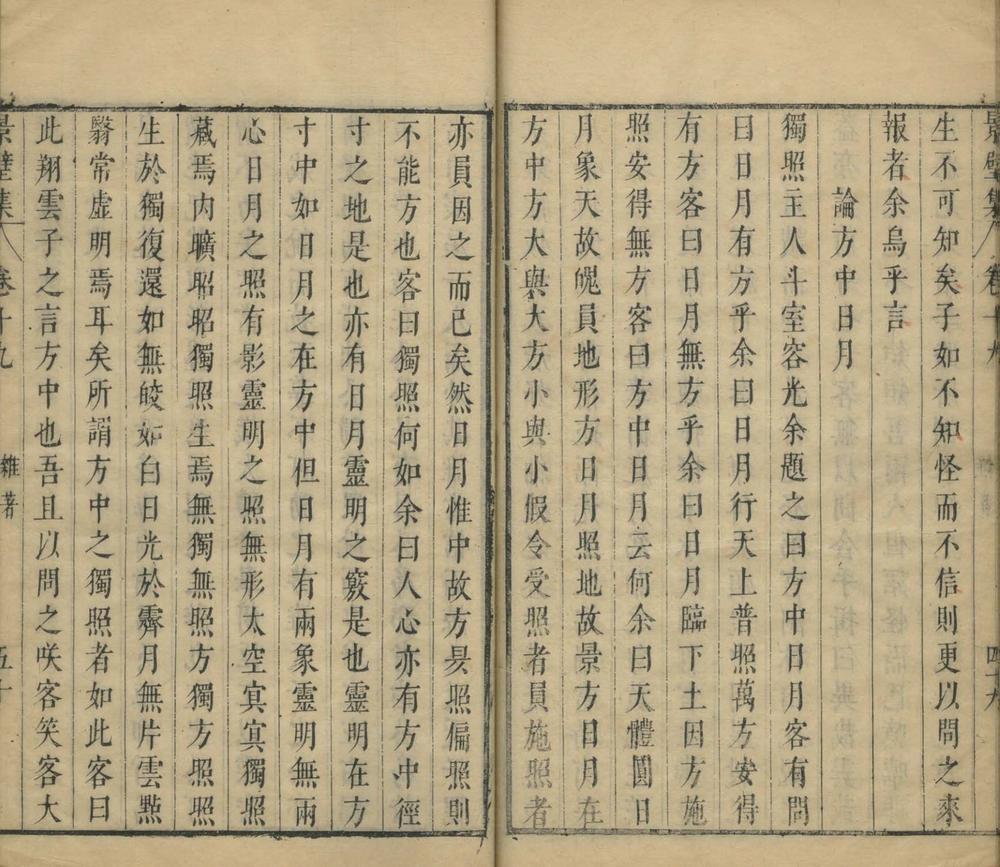 景璧集 卷十九 四十九
生不可知矣子如不知怪而不信則更以問之來
報者余烏乎言
論方中日月
獨照主人斗室容光余題之曰方中日月客有問
曰日月有方乎余曰日月行天上普照萬方安得
有方客曰日月無方乎余曰日月臨下土因方施
照安得無方客曰方中日月云何余曰天體圓日
月象天故魄員地形方日月照地故景方日月在
方中方大與大方小與小假令受照者員施照者
亦員因之而已矣然日月惟中故方昃照偏照則
不能方也客曰獨照何如余曰人心亦有方中徑
寸之地是也亦有日月靈明之竅是也靈明在方
寸中如日月之在方中但日月有兩象靈明無兩
心日月之照有影靈明之照無形太空寘寘獨照
藏焉內曠昭昭獨照生焉無獨無照方獨方照照
生於獨復還如無皎如白日光於霽月無片雲㸃
翳常虛明焉耳矣所謂方中之獨照者如此客曰
此翔雲子之言方中也吾且以問之咲客笑客大
景璧集 卷十九 雜著 五十